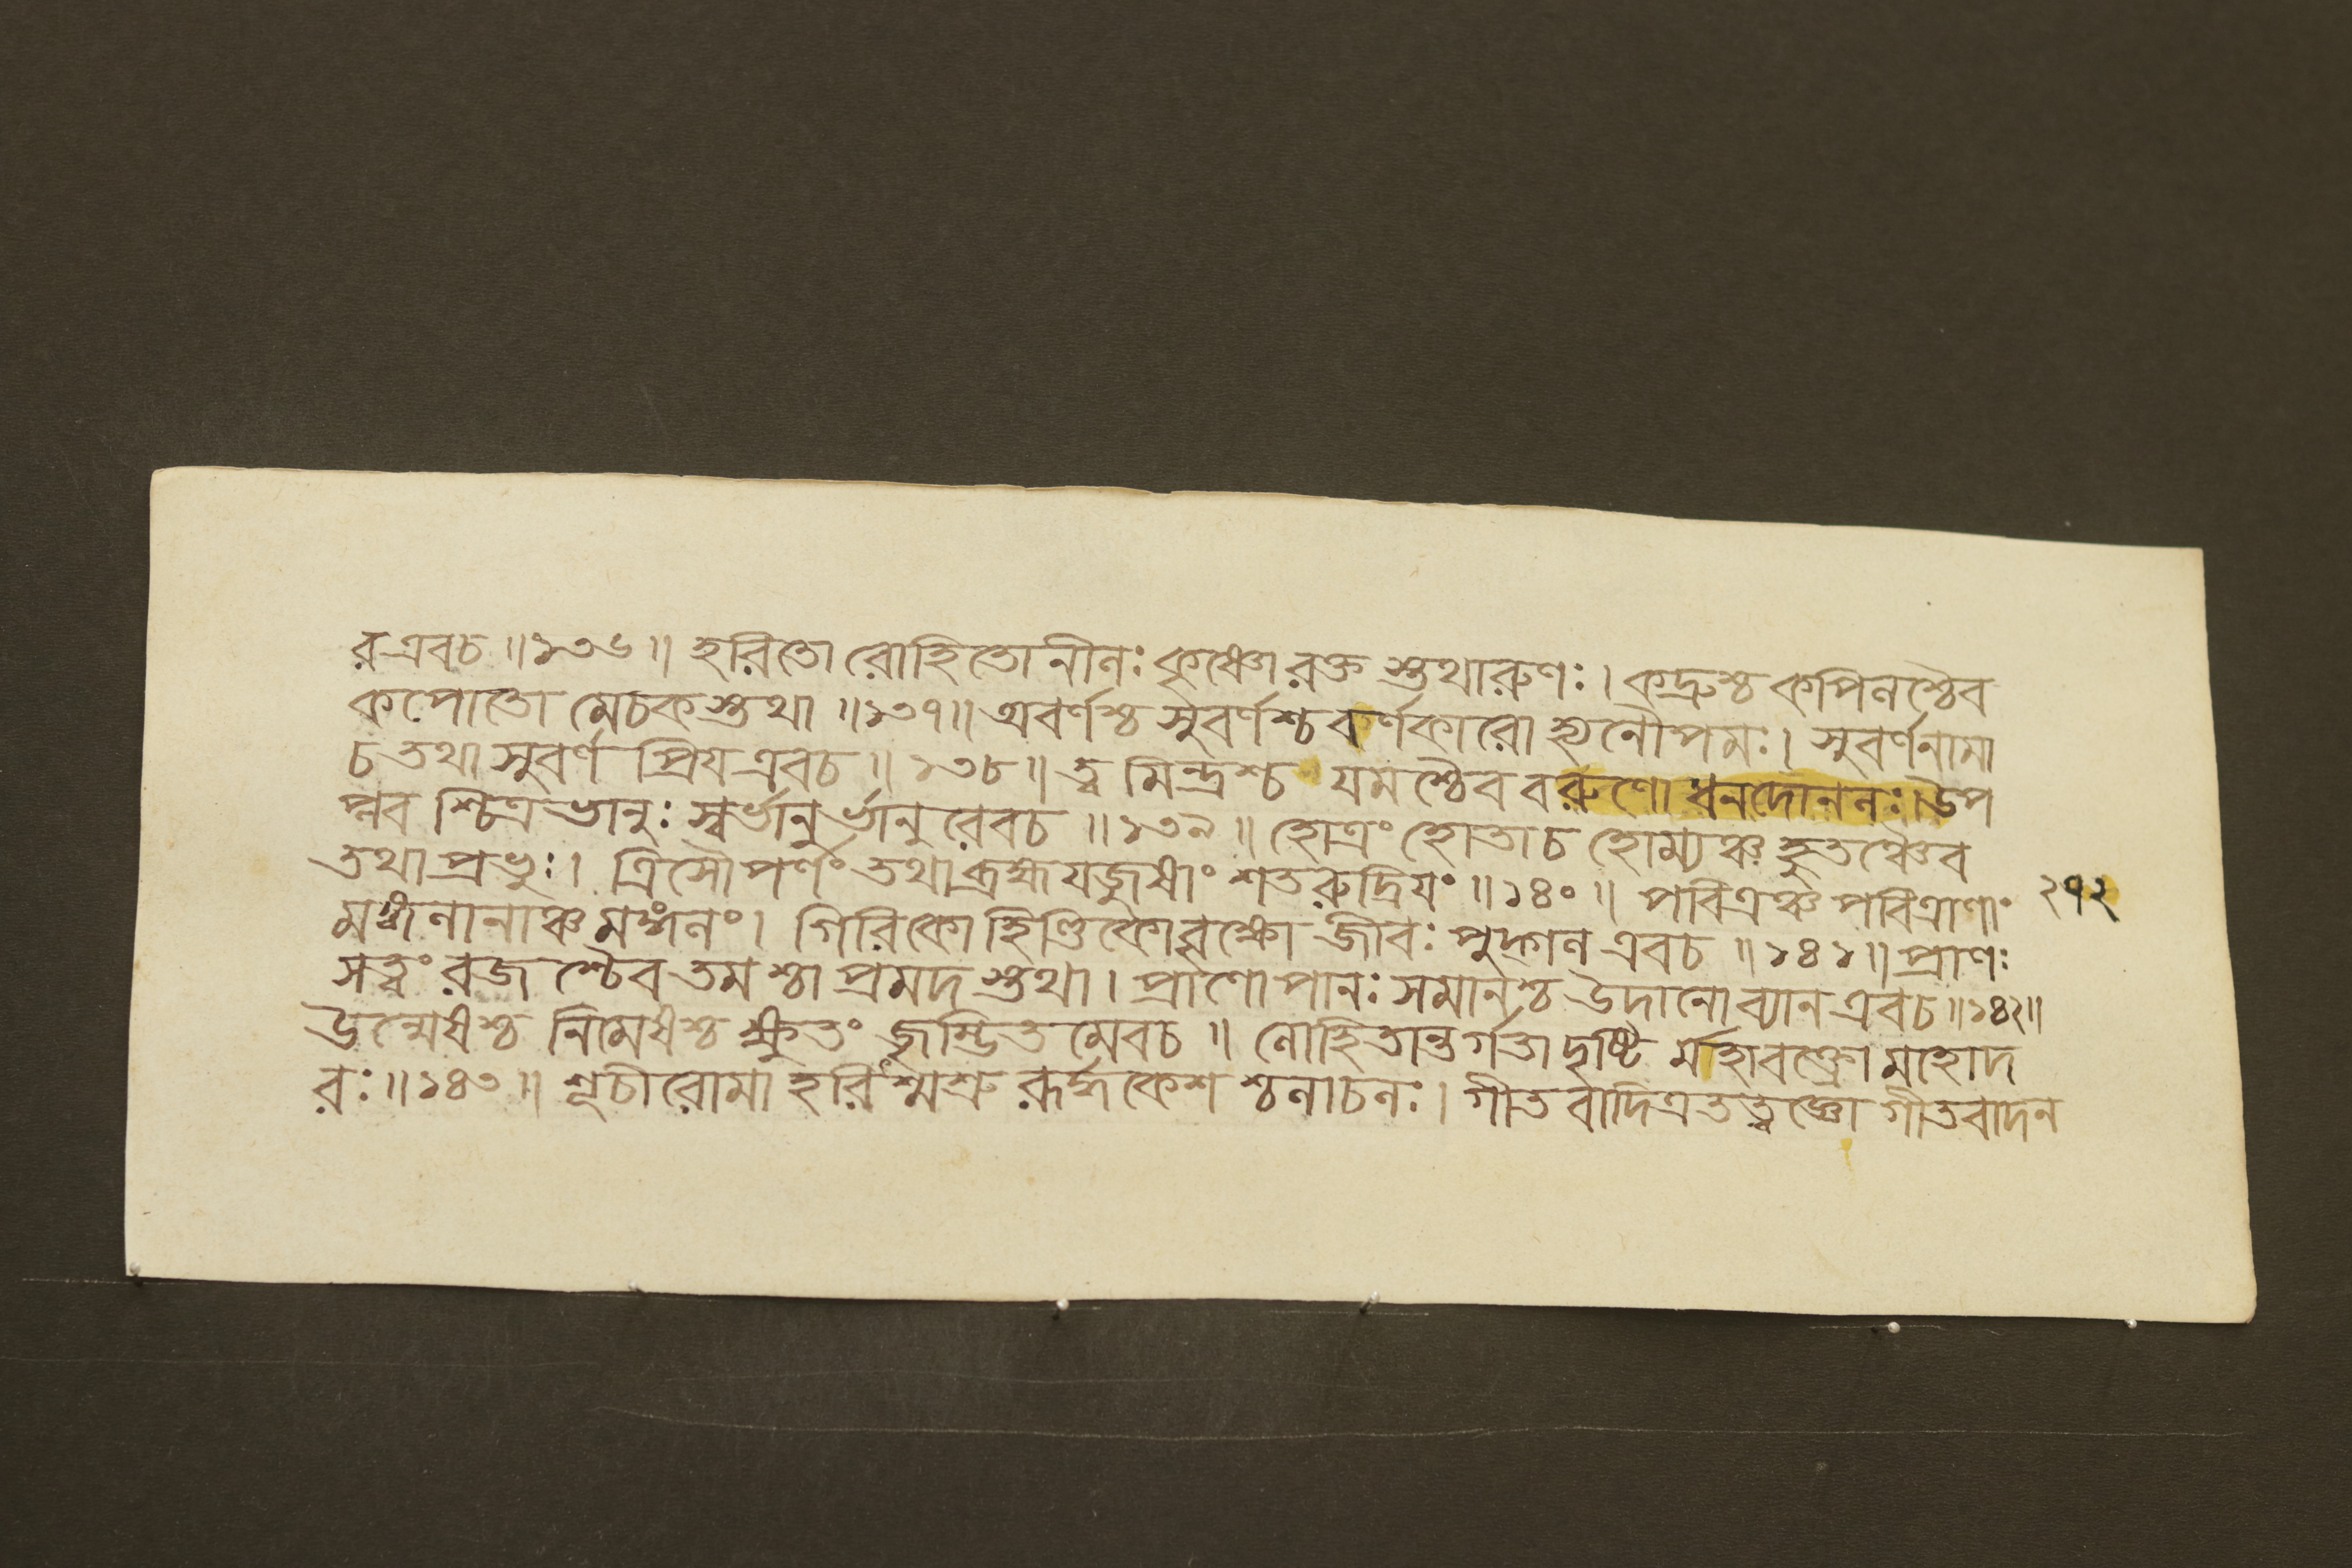 র এবচ ॥ ১৩৬ ॥ হরিতো রোহিতো নীনঃ কৃষ্ণো রক্ত স্তথারুণঃ । কদ্রুশ্চ কপিনশ্চৈব
কপোতো মেচকস্তথা ॥ ১৩৭ ॥ অবর্ণশ্চ সুবর্ণশ্চ বর্ণকারো হ্যনৌপমঃ । সুবর্ণনামা
চ তথা সুবর্ণ প্রিয এবচ ॥ ১৩৮ ॥ ত্ব মিন্দ্রশ্চ যমশ্চৈব বরুণো ধনদোননঃ । উপ
প্লব শ্চিত্রভানুঃ স্বর্ভানুর্ভানুরেবচ ॥ ১৩৯ ॥ হোত্রং হোতাচ হোম্যঞ্চ হুতঞ্চৈব
তথা প্রভুঃ । ত্রিসৌপর্ণং তথা ব্রহ্ম যজুষাং শতরুদ্রিযং ॥ ১৪০ ॥ পবিত্রঞ্চ পবিত্রাণাং ২৭২
মঙ্গনানাঞ্চ মঙ্গনং । গিরিকো হিণ্ডিকো বৃক্ষো জীবঃ পুদ্গন এবচ ॥ ১৪১ ॥ প্রাণঃ
সত্ত্বং রজশ্চৈব তমশ্চা প্রমদ স্তথা । প্রাণোপানঃ সমানশ্চ উদানো ব্যান এবচ ॥ ১৪২ ॥
উন্মেষশ্চ নিমেষশ্চ ক্ষুতং জৃম্ভিত মেবচ ॥ নোহিতান্তর্গতা দৃষ্টি র্মহাবক্ত্রো মহোদ
রঃ ॥ ১৪৩ ॥ শূচীরোমা হরিশ্মশ্রু রূর্দ্ধকেশ শ্চনাচনঃ । গীতবাদিত্রতত্ত্বজ্ঞো গীতবাদন